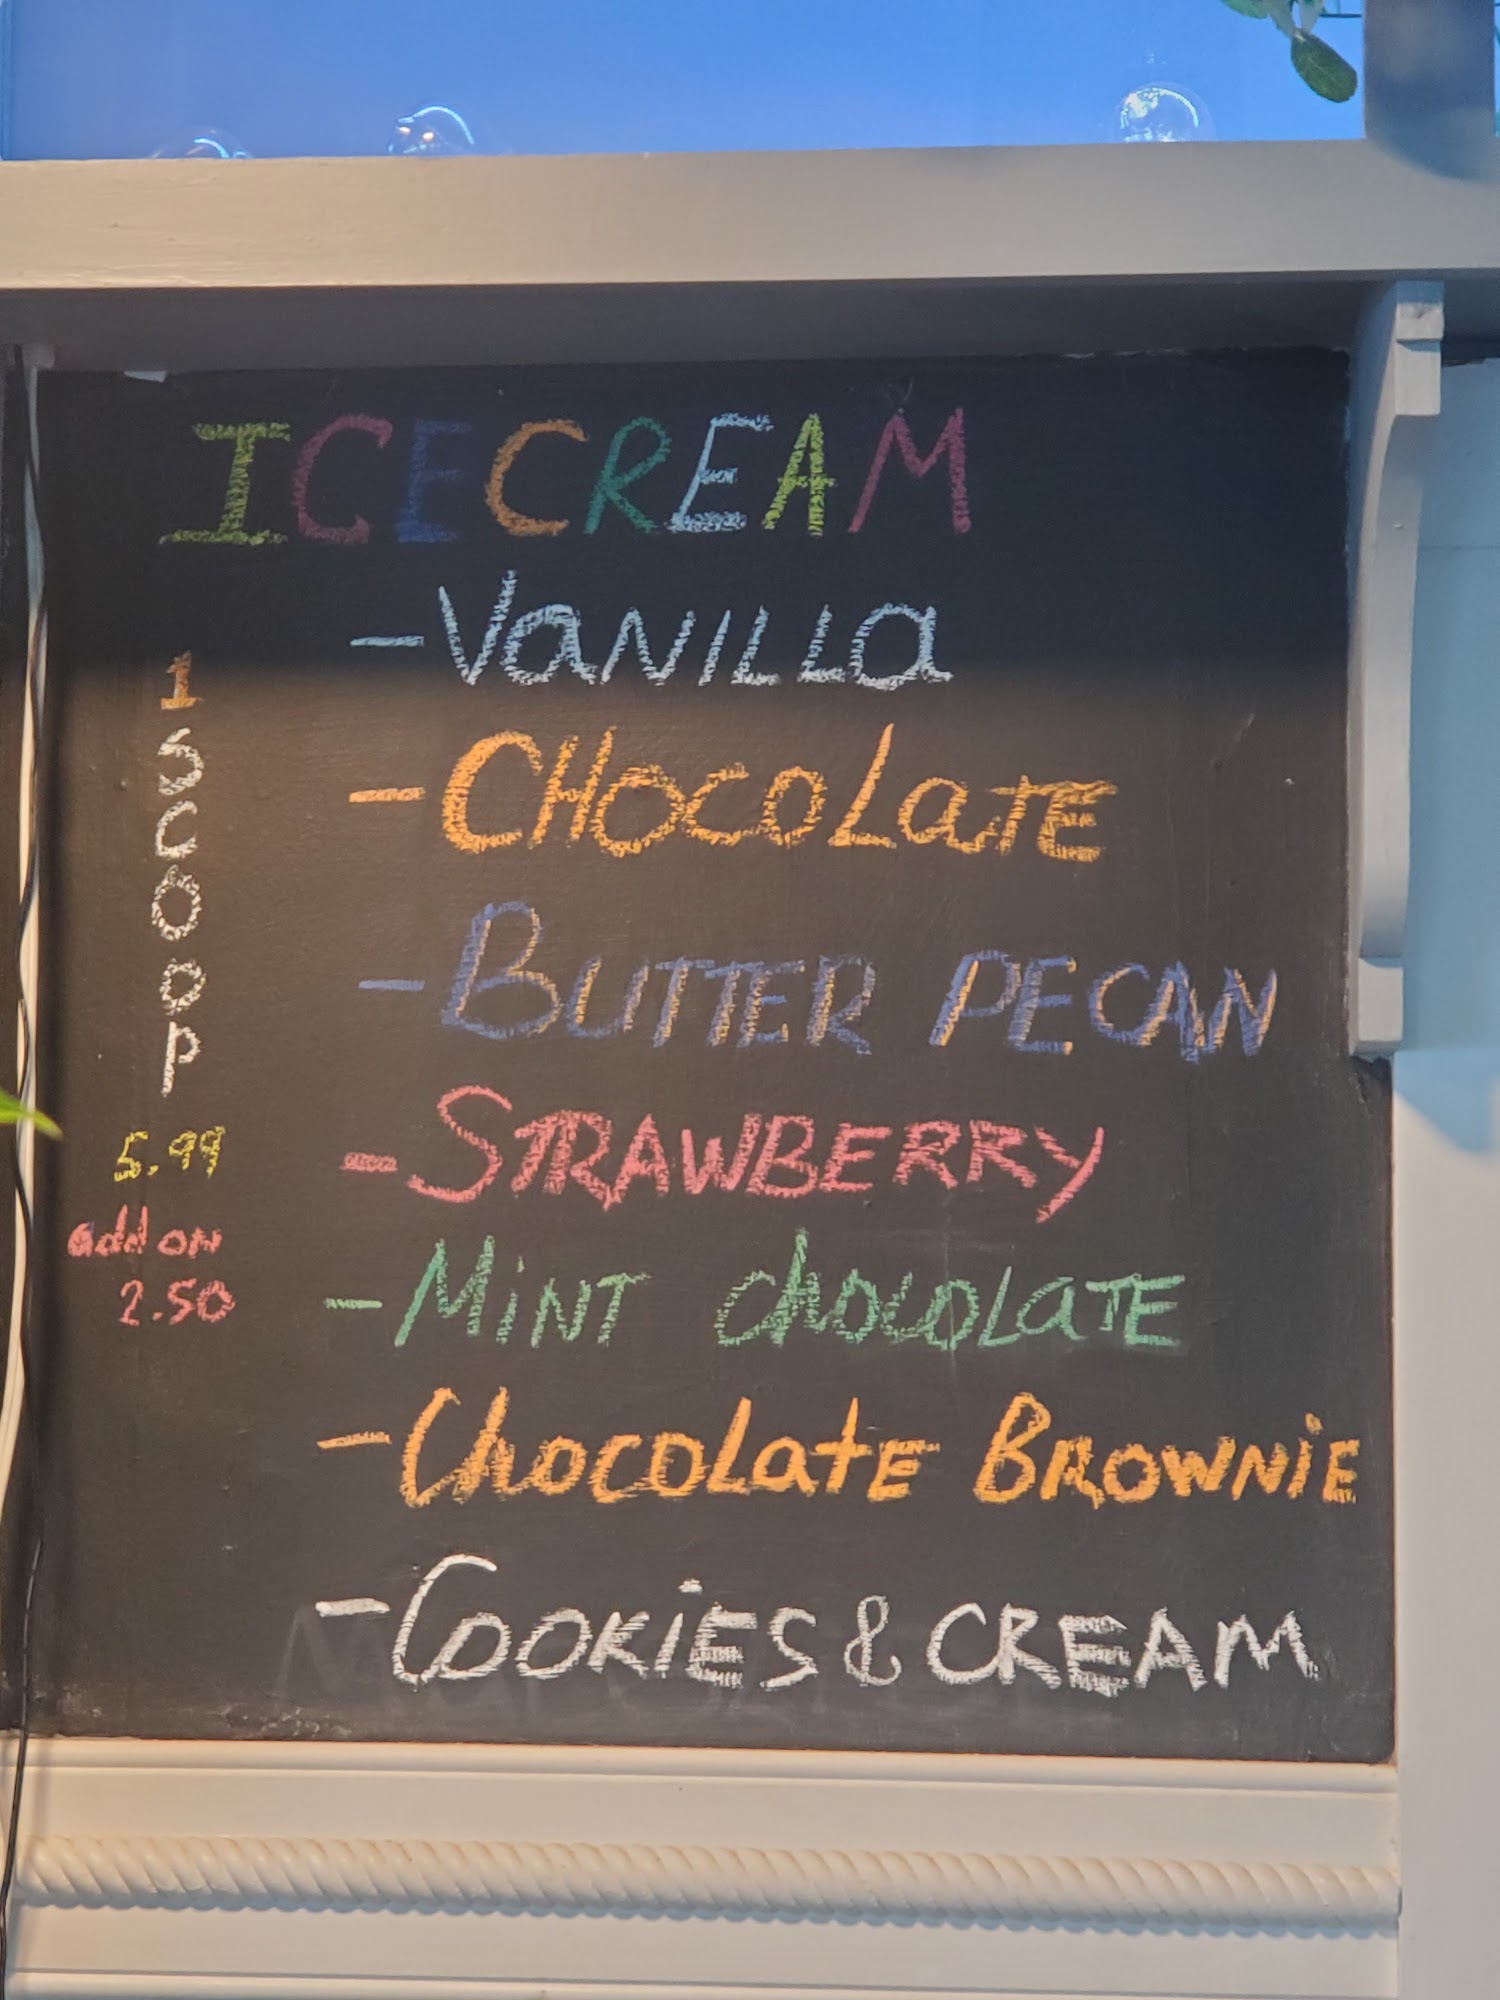 ICECREAM
-Vanilla
-Chocolate
-Butter Pecan
-Strawberry
-Mint chocolate
-Chocolate Brownie
-Cookies & Cream
1
S
C
O
O
P
5.99
add on
2.50